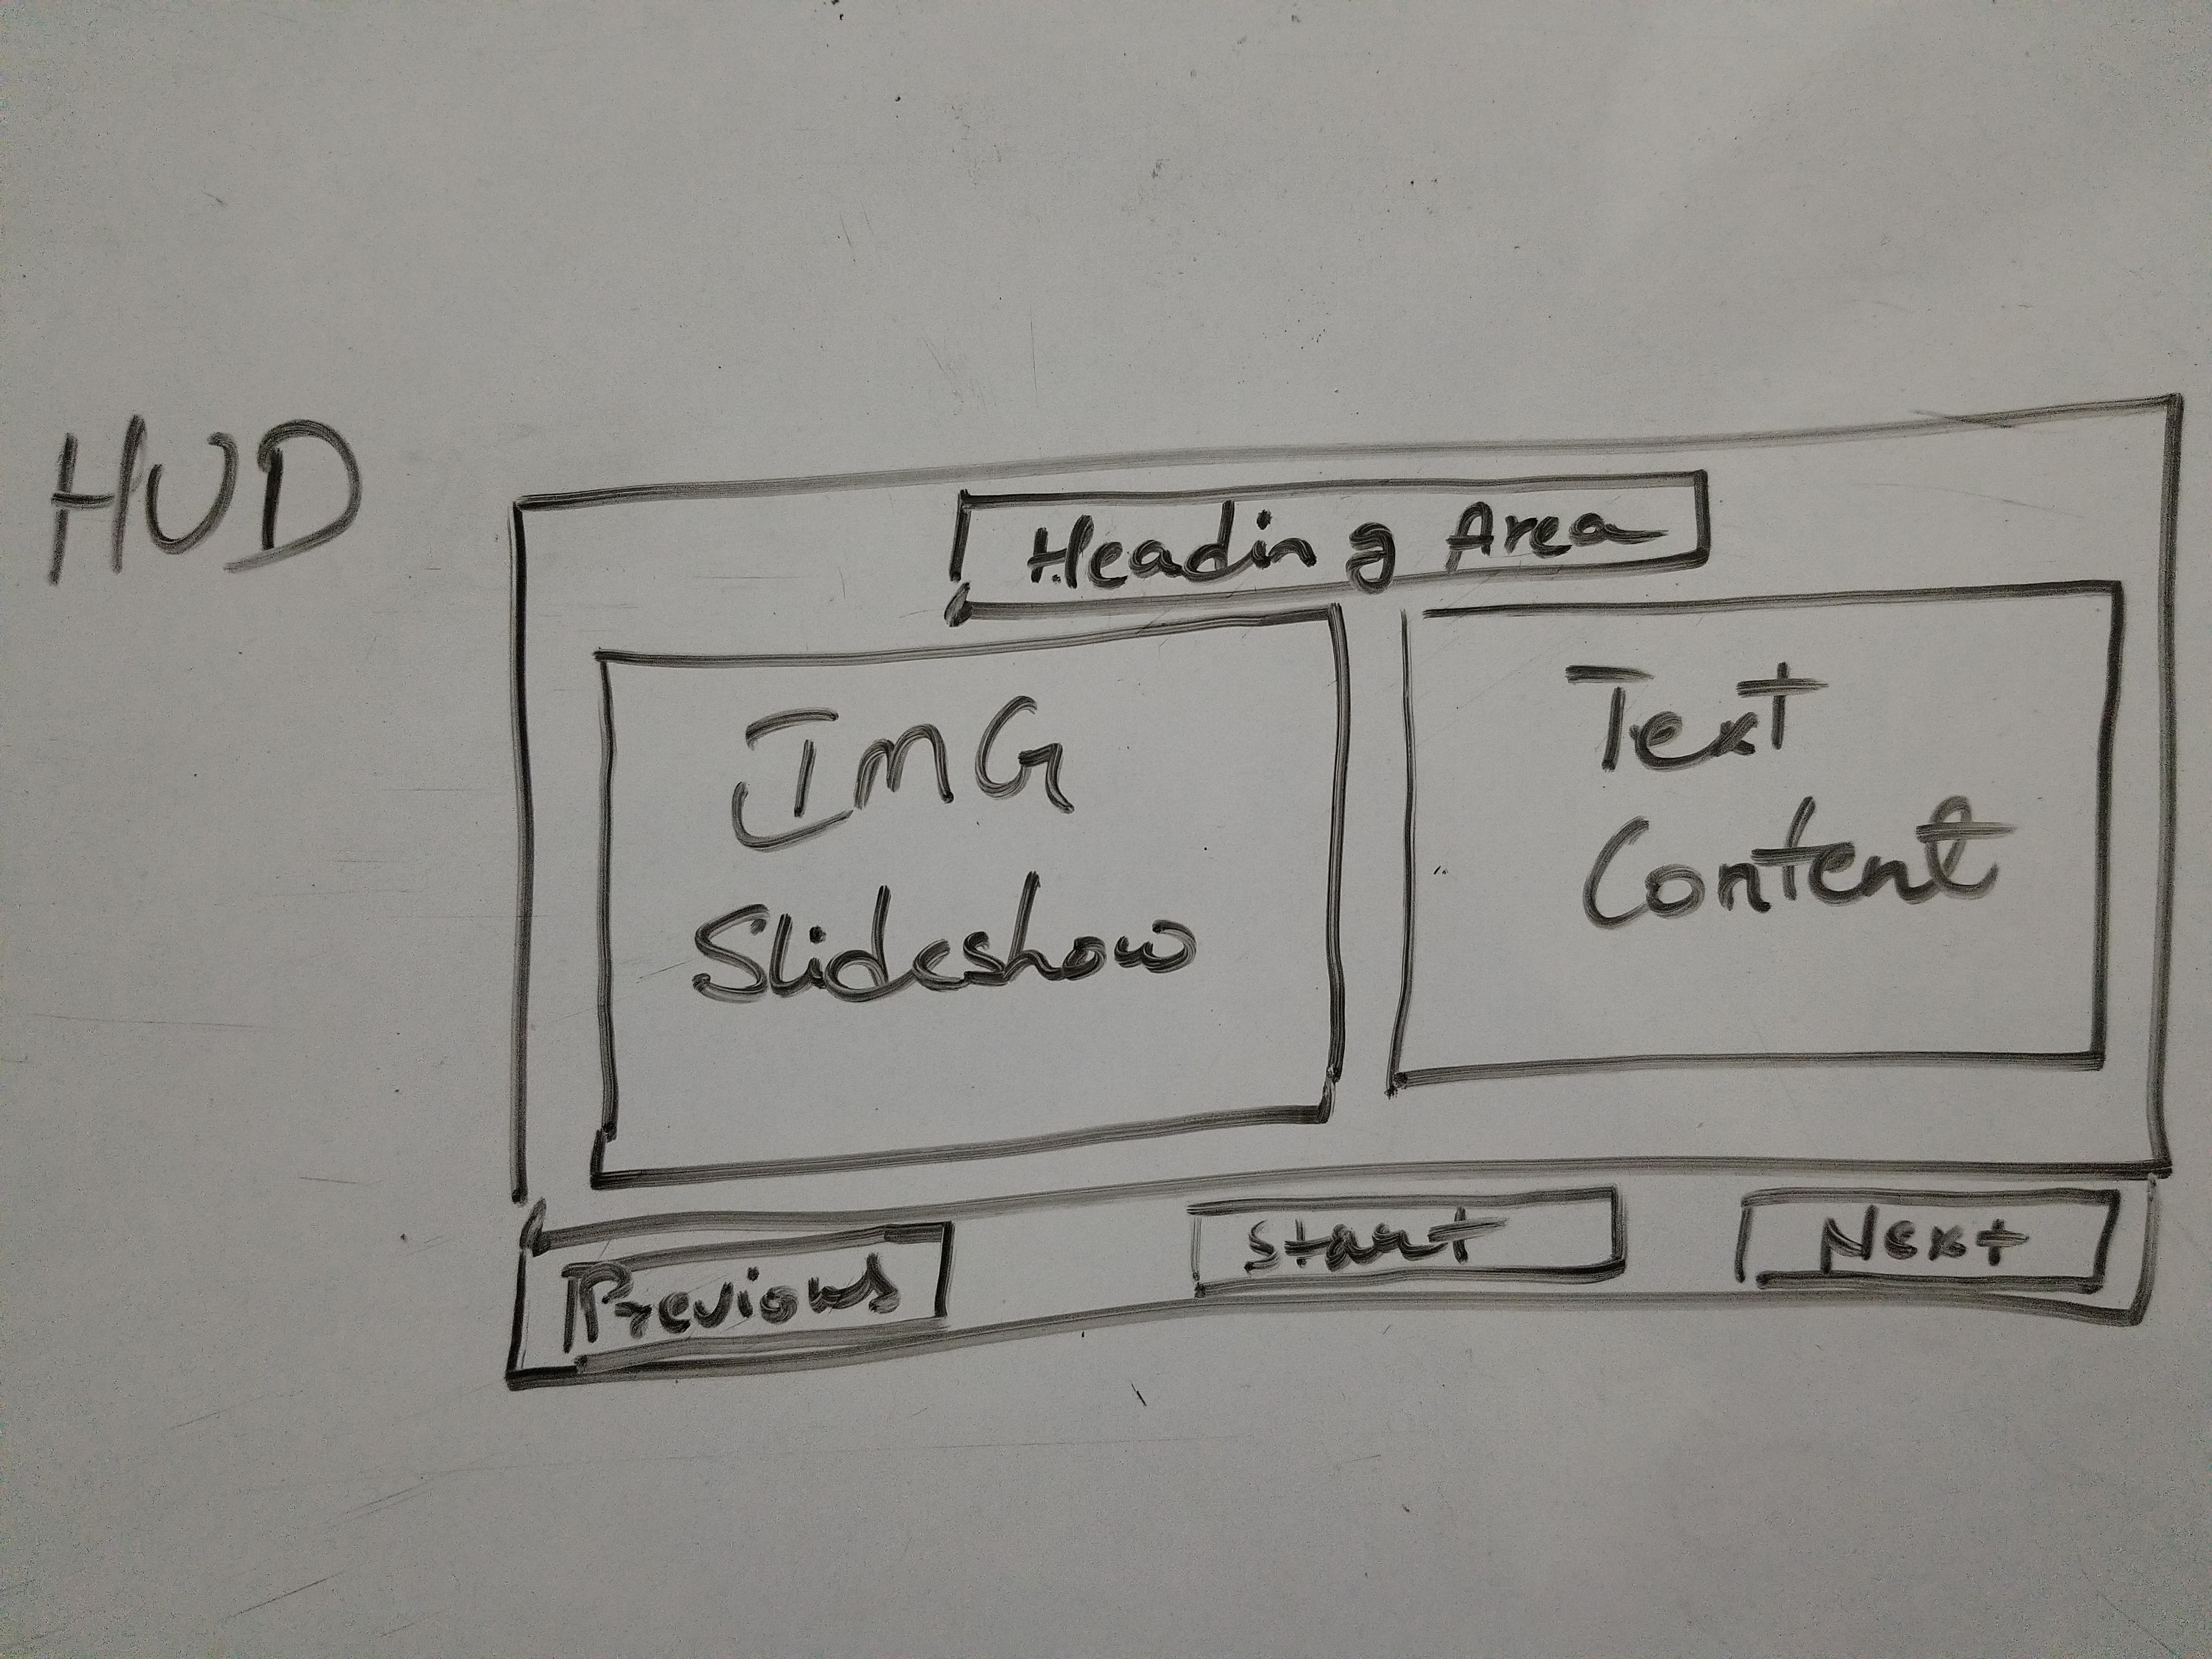 HUD
Heading Area
IMG
Slideshow
Text
Content
Previous
Start
Next